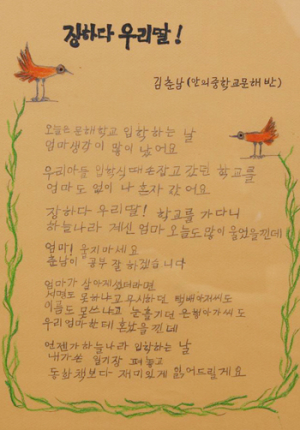 장하다 우리딸!
김춘남(안의중학교문해반)
오늘은 문해학교 입학하는 날
엄마생각이 많이 났어요
우리아들 입학식때 손잡고 갔던 학교를
엄마도 없이 나 혼자 갔어요
장하다 우리딸! 학교를 가다니
하늘나라 계신 엄마 오늘도 많이 울었을낀데
엄마! 울지마세요
춘남이 공부 잘 하겠습니다
엄마가 살아계셨더라면
서명도 못하냐고 무시하던 택배아저씨도
이름도 못쓰냐고 눈흘기던 은행아가씨도
우리엄마한테 혼났을낀데
언젠가 하늘나라 입학하는 날
내가쓴 일기장 펴놓고
동화책보다 재미있게 읽어드릴게요